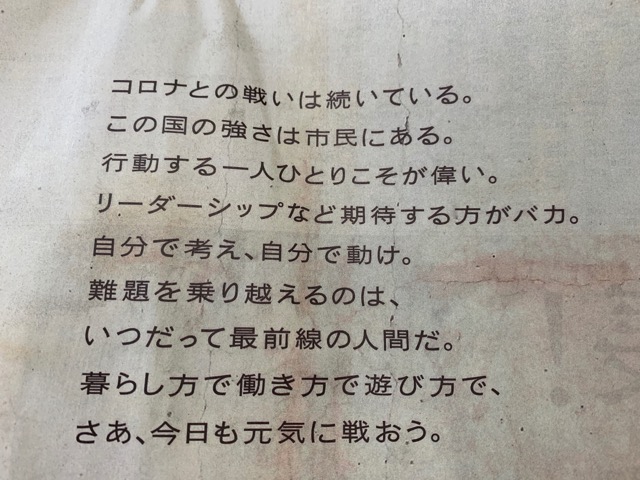 コロナとの戦いは続いている。
この国の強さは市民にある。
行動する一人ひとりこそが偉い。
リーダーシップなど期待する方がバカ。
自分で考え、自分で動け。
難題を乗り越えるのは、
いつだって最前線の人間だ。
暮らし方で働き方で遊び方で、
さあ、今日も元気に戦おう。